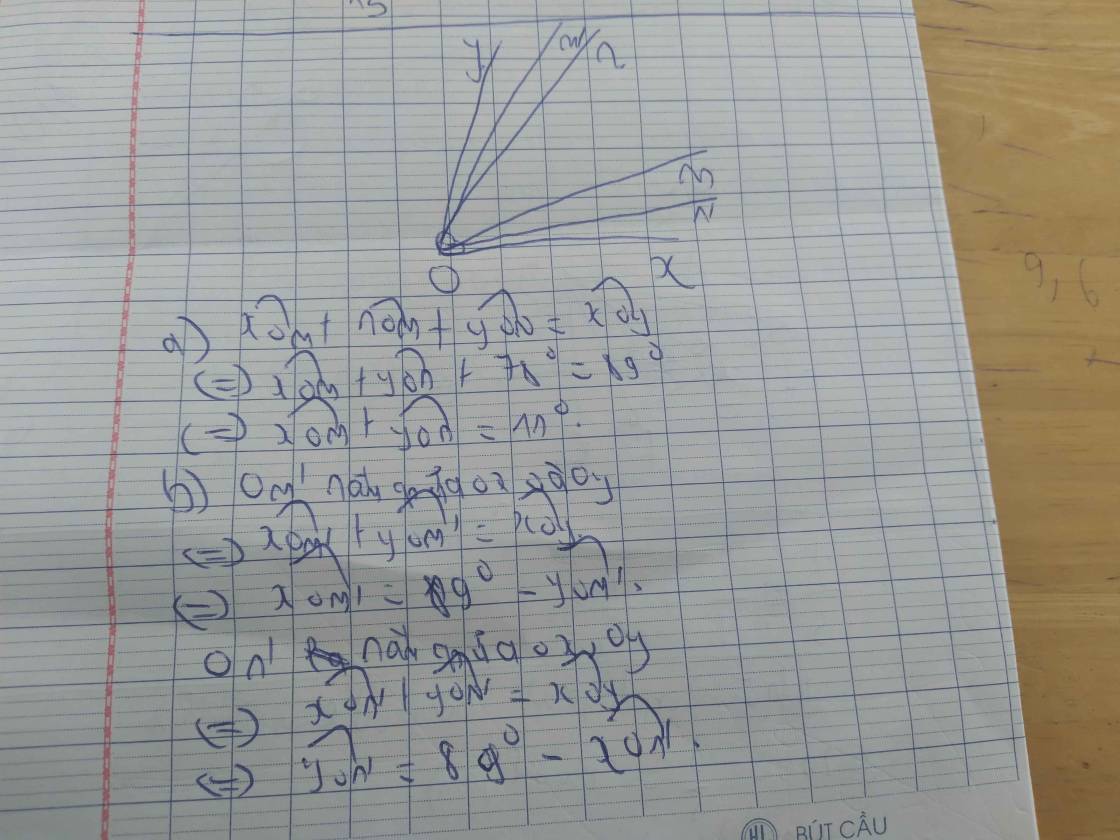 y
n
m
n
O
x
a) xOm + nOm + yOn = xOy
(=) xOm + yOn + 78° = 89°
(=) xOm + yOn = 11°.
b) Om' nằm giữa Ox và Oy
(=) xOm' + yOm' = xOy
(=) xOm' = 89° - yOm'.
On' nằm giữa Ox, Oy
(=) xOn' + yOn' = xOy
(=) yOn' = 89° - xOn'.
BÚT CẦU
9,6